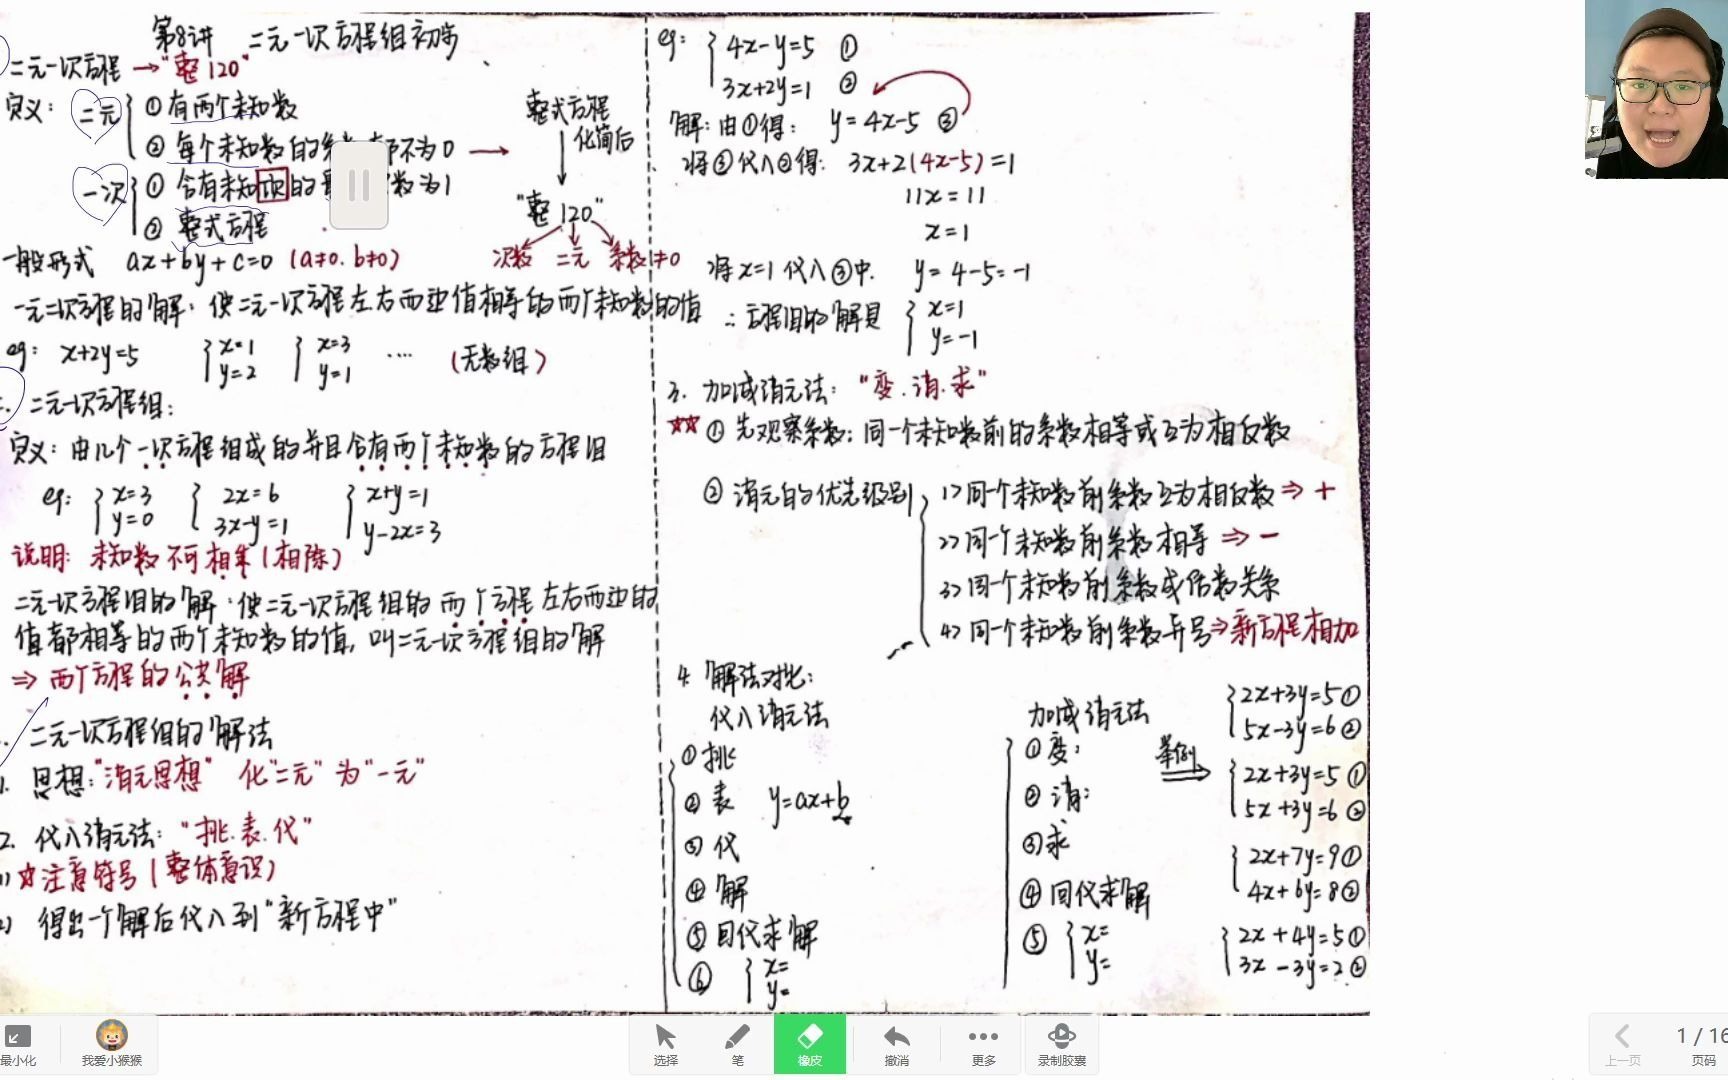 第8讲 二元一次方程组初步
二元一次方程 → "整120"
定义：
二元
① 有两个未知数
② 每个未知数的系数都不为0 →
一次
① 含有未知项的 数为1
② 整式方程
整式方程
化简后
"整120"
次数 二元 系数≠0
一般形式 ax+by+c=0 (a≠0.b≠0)
一元二次方程的解：使二元一次方程左右两边值相等的两个未知数的值
eg: x+2y=5 {x=1 y=2 {x=3 y=1 ···· (无数组)
二元一次方程组：
定义：由几个一次方程组成的并且含有两个未知数的方程组
eg: {x=3 y=0 {2x=6 3x-y=1 {x+y=1 y-2x=3
说明：未知数不可相乘(相除)
二元一次方程组的解：使二元一次方程组的两个方程左右两边的
值都相等的两个未知数的值，叫二元一次方程组的解
⇒ 两个方程的公共解
二元一次方程组的解法
1. 思想："消元思想" 化"二元"为"一元"
2. 代入消元法："挑.表.代"
1) ☆注意符号(整体意识)
2) 得出一个解后代入到"新方程中"
eg: {4x-y=5 ①
3x+2y=1 ②
解：由①得： y=4x-5 ③
将③代入②得： 3x+2(4x-5)=1
11x=11
x=1
将x=1代入③中. y=4-5=-1
∴方程组的解是 {x=1
y=-1
3. 加减消元法："变.消.求"
☆☆ ① 先观察系数：同一个未知数前的系数相等或互为相反数
② 消元的优先级别
1> 同一个未知数前系数互为相反数 ⇒ +
2> 同一个未知数前系数相等 ⇒ -
3> 同一个未知数前系数成倍数关系
4> 同一个未知数前系数异号⇒新方程相加
4. 解法对比：
代入消元法
① 挑
② 表 y=ax+b
③ 代
④ 解
⑤ 回代求解
⑥ {x=
y=
加减消元法
① 变：
② 消：
③ 求
④ 回代求解
⑤ {x=
y=
举例
{2x+3y=5①
5x-3y=6②
{2x+3y=5①
5x+3y=6②
{2x+7y=9①
4x+6y=8②
{2x+4y=5①
3x-3y=2②
最小化 我爱小猴猴 选择 笔 橡皮 撤消 更多 录制胶囊 上一页 1 / 16 页码